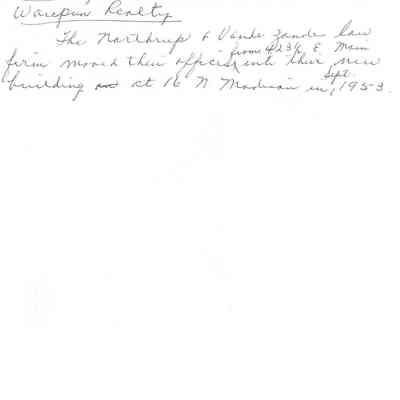 Waupun Realty
The Northrup & Vande Zande law
firm moved their offices from 423½ E. Main into their new
building at 16 N Madison in Sept. 1953.